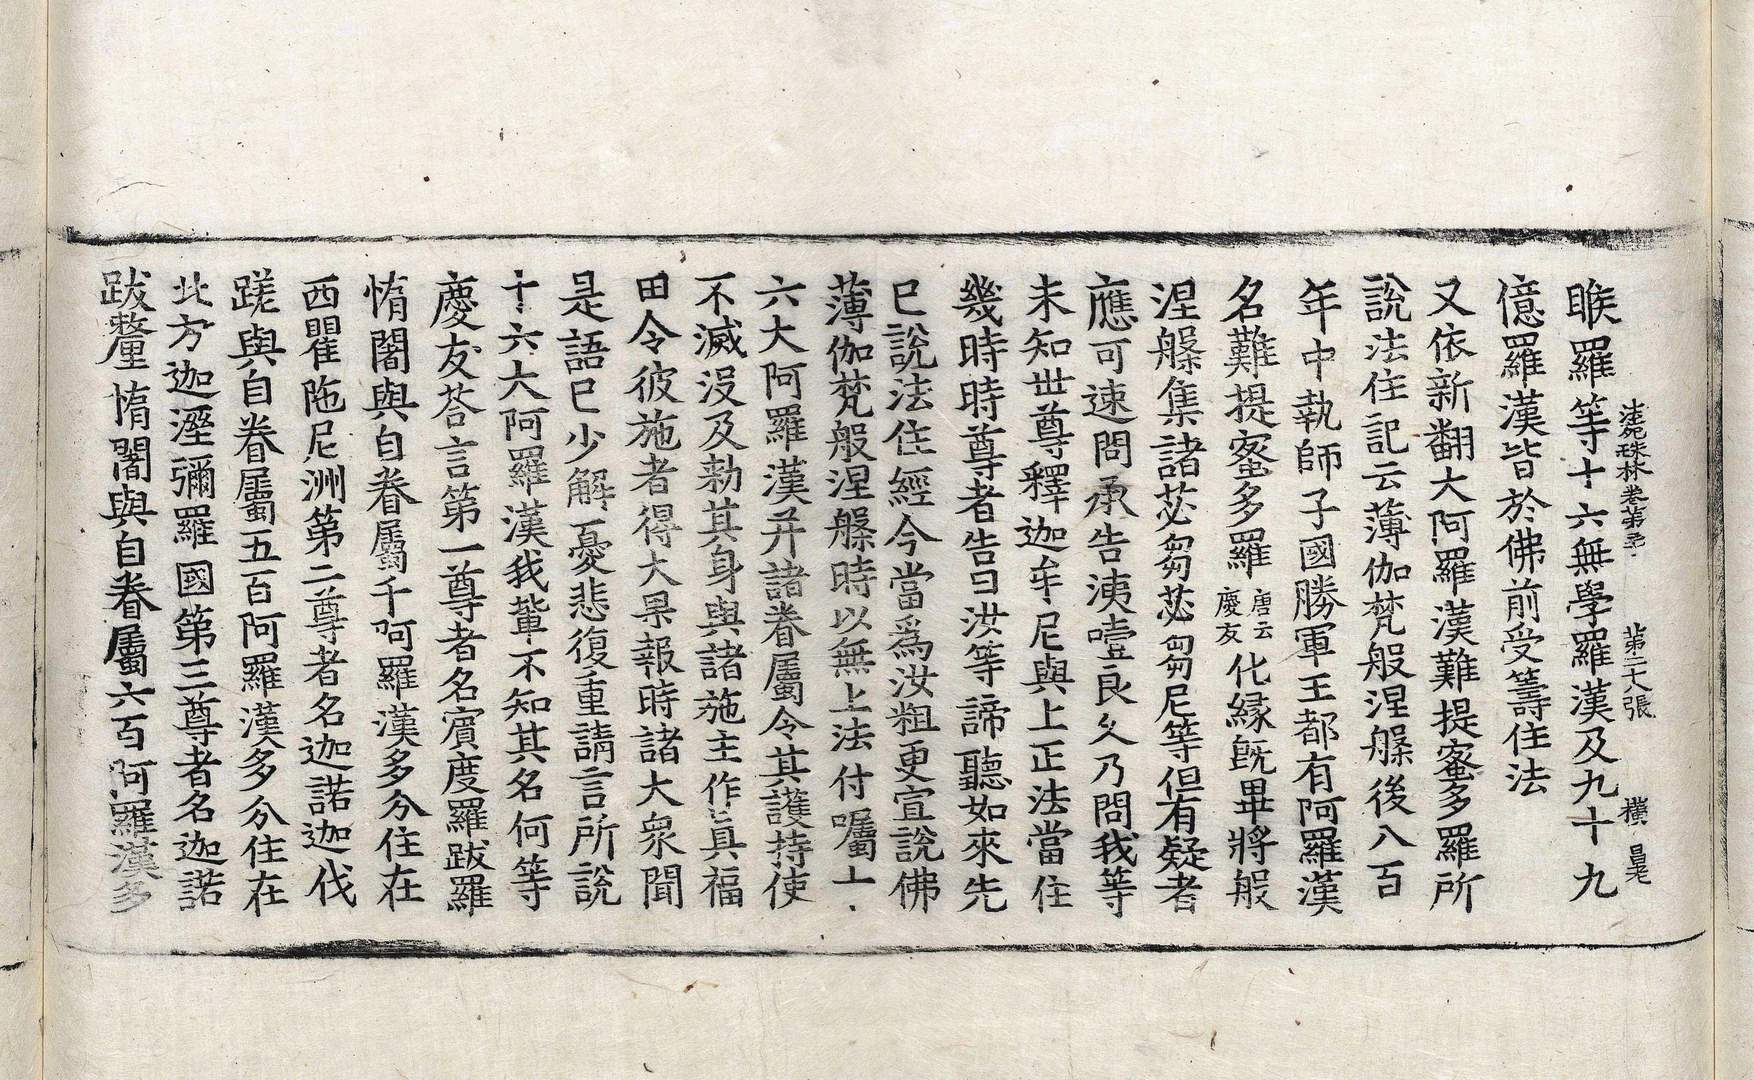 法苑珠林卷第三十　第二十八張　橫
睺羅等十六無學羅漢及九十九
億羅漢皆於佛前受籌住法
又依新翻大阿羅漢難提蜜多羅所
說法住記云薄伽梵般涅槃後八百
年中執師子國勝軍王都有阿羅漢
名難提蜜多羅唐云慶友化緣既畢將般
涅槃集諸苾芻苾芻尼等但有疑者
應可速問承告洟噎良久乃問我等
未知世尊釋迦牟尼與上正法當住
幾時時尊者告曰汝等諦聽如來先
已說法住經今當爲汝粗更宣說佛
薄伽梵般涅槃時以無上法付囑十
六大阿羅漢并諸眷屬令其護持使
不滅沒及勑其身與諸施主作眞福
田令彼施者得大果報時諸大衆聞
是語已少解憂悲復重請言所說
十六大阿羅漢我輩不知其名何等
慶友荅言第一尊者名賓度羅跋羅
惰闍與自眷屬千阿羅漢多分住在
西瞿陁尼洲第二尊者名迦諾迦伐
蹉與自眷屬五百阿羅漢多分住在
北方迦溼彌羅國第三尊者名迦諾
跋釐惰闍與自眷屬六百阿羅漢多